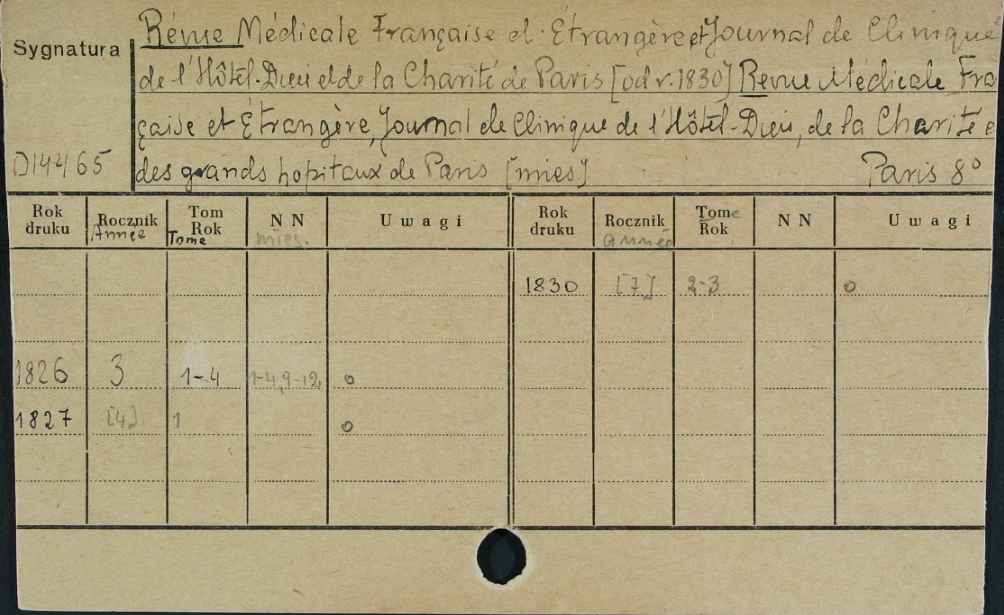 Sygnatura
Révue Médicale Française et Étrangère et Journal de Clinique
de l'Hôtel-Dieu et de la Charité de Paris [od r. 1830] Revue Médicale Fran
çaise et Étrangère, Journal de Clinique de l'Hôtel-Dieu, de la Charité e
D14465 des grands hopitaux de Paris [mies] Paris 8°
Rok druku Rocznik Année Tom Rok Tome NN mies. Uwagi Rok druku Rocznik année Tome Rok NN Uwagi
1830 [7] 2-3 o
1826 3 1-4 1-4, 9-12, o
1827 [4] 1 o